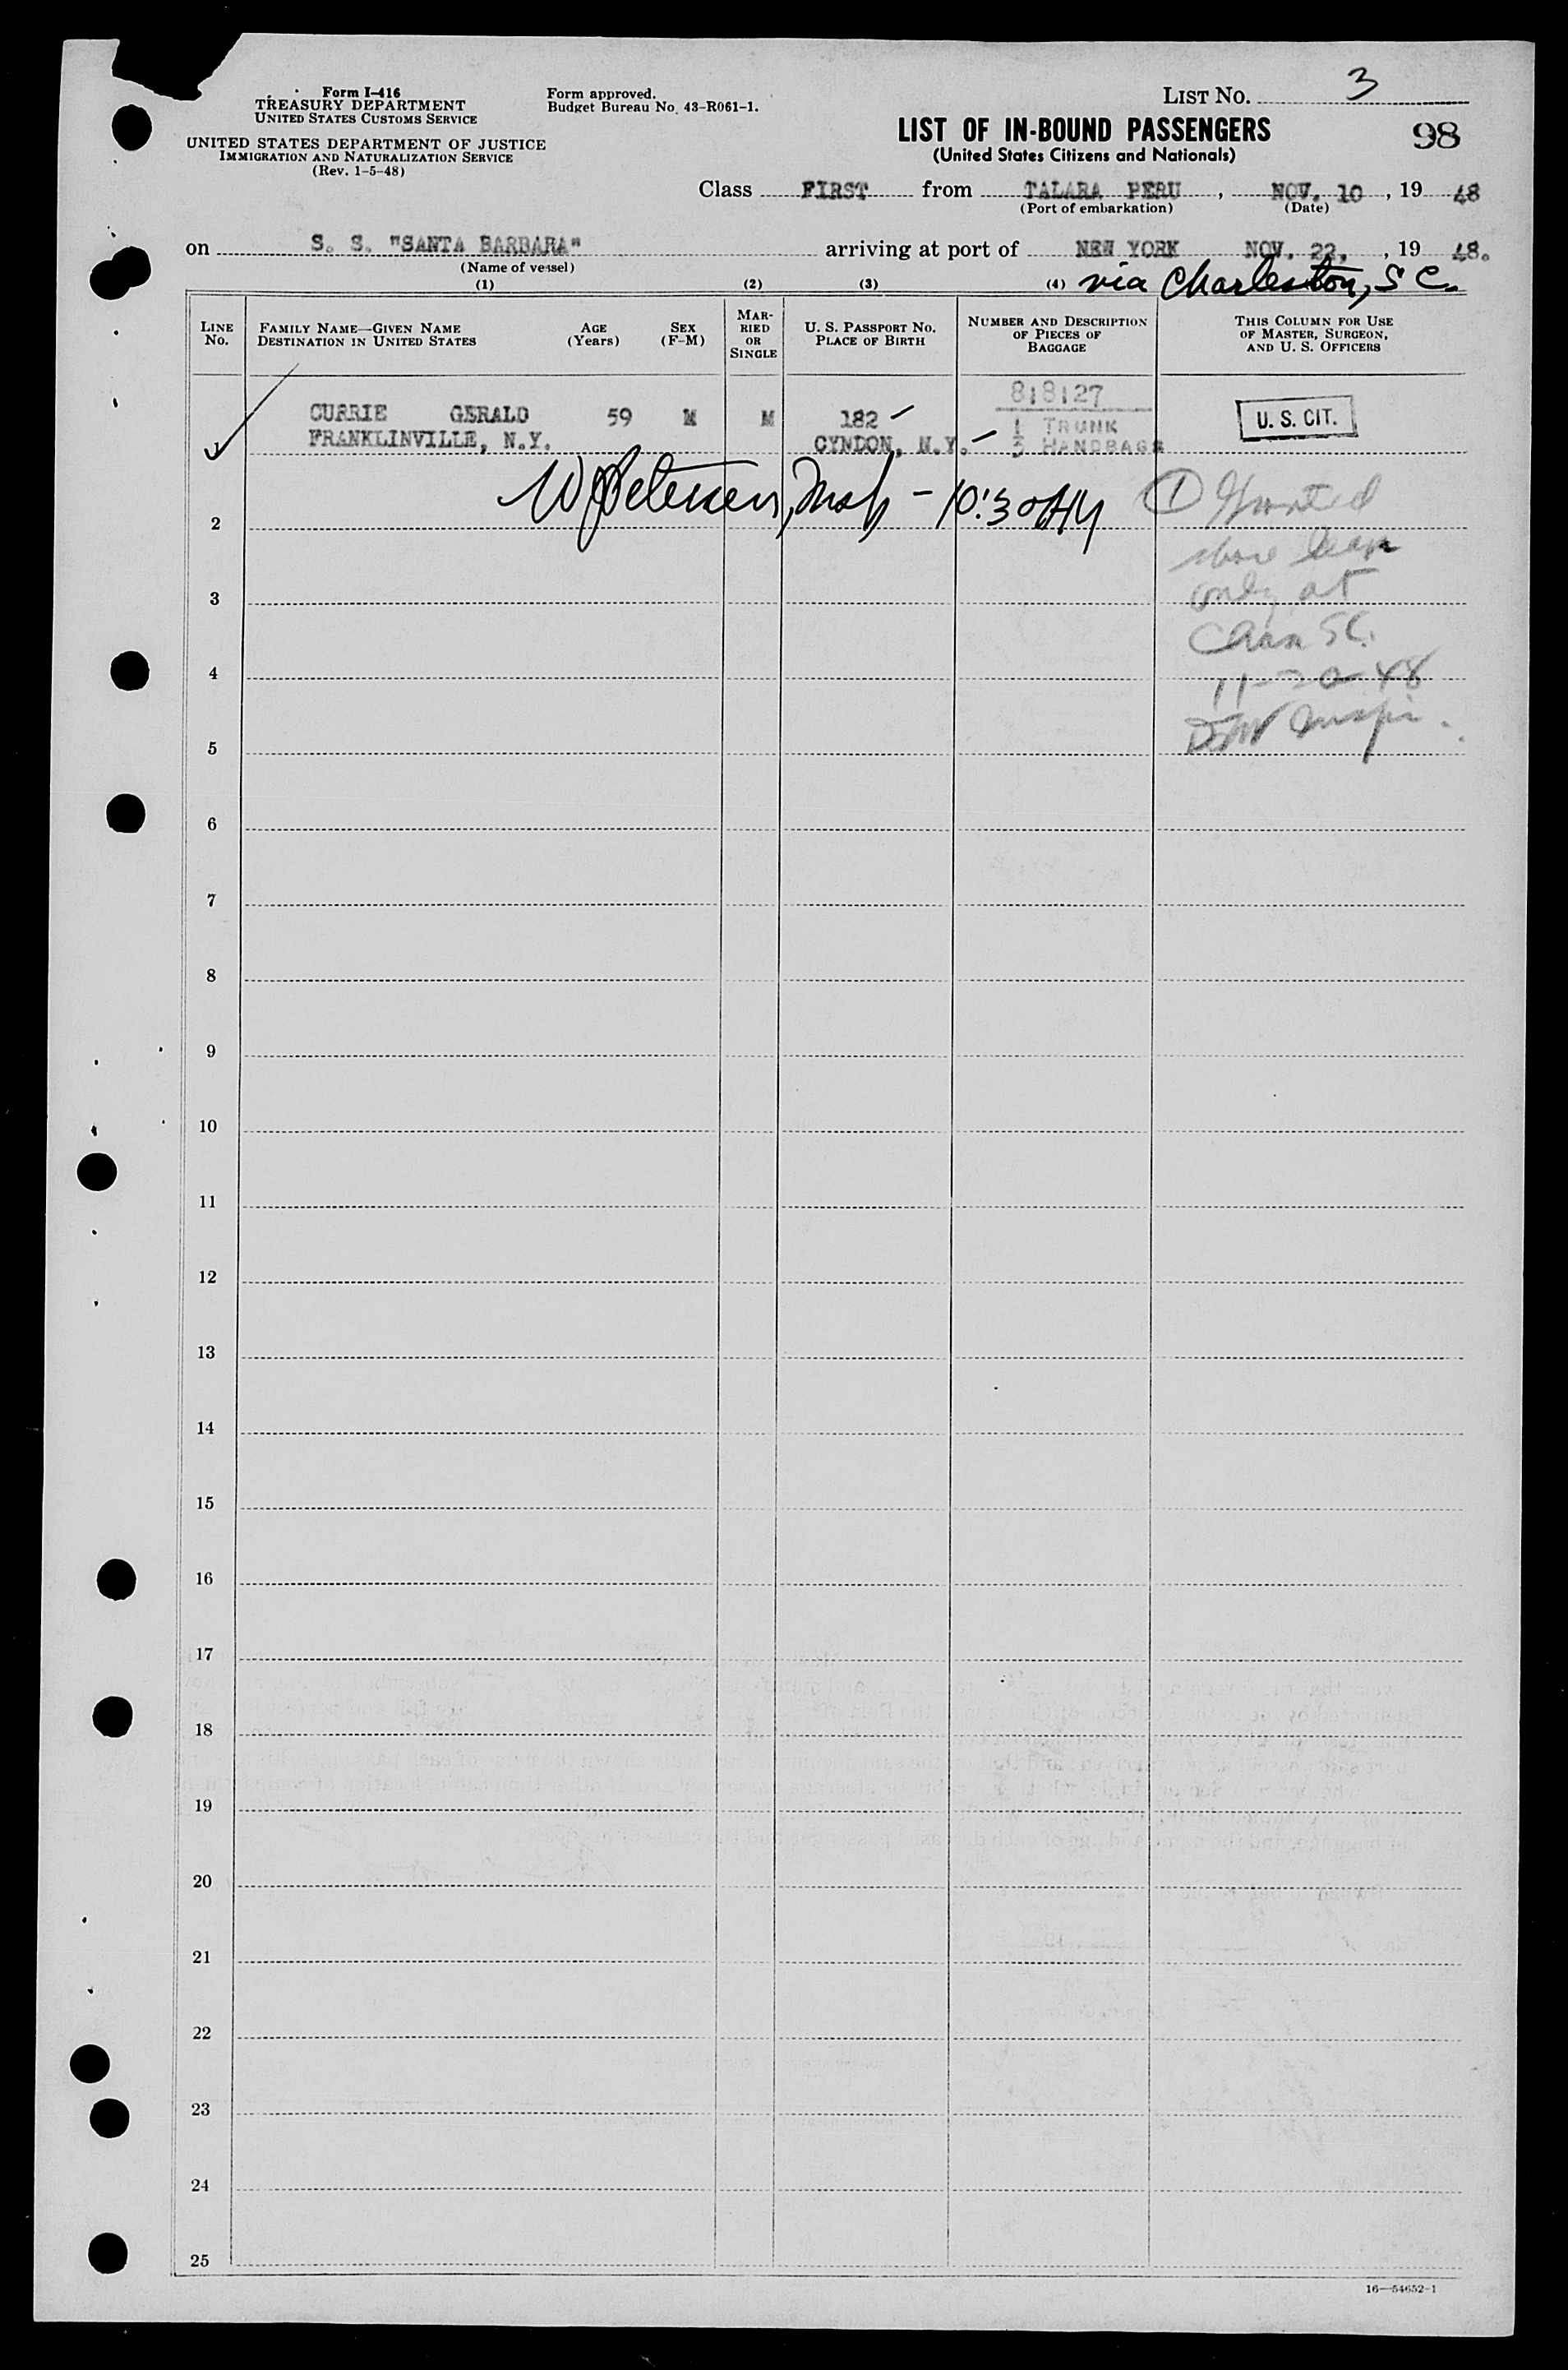 Form I-416
TREASURY DEPARTMENT
UNITED STATES CUSTOMS SERVICE
UNITED STATES DEPARTMENT OF JUSTICE
IMMIGRATION AND NATURALIZATION SERVICE
(Rev. 1-5-48)
Form approved.
Budget Bureau No. 43-R061-1.
LIST NO. 3
LIST OF IN-BOUND PASSENGERS
98
(United States Citizens and Nationals)
Class FIRST from TALARA PERU, NOV. 10, 19 48
(Port of embarkation) (Date)
on S. S. "SANTA BARBARA" arriving at port of NEW YORK NOV. 22, , 19 48.
(Name of vessel)
via Charleston, S C.
(1) (2) (3) (4)
LINE No.
FAMILY NAME—GIVEN NAME
DESTINATION IN UNITED STATES
AGE
(Years)
SEX
(F-M)
MAR-
RIED
OR
SINGLE
U. S. PASSPORT NO.
PLACE OF BIRTH
NUMBER AND DESCRIPTION
OF PIECES OF
BAGGAGE
THIS COLUMN FOR USE
OF MASTER, SURGEON,
AND U. S. OFFICERS
818127
1 CURRIE GERALD 59 M M 182 1 TRUNK U. S. CIT.
FRANKLINVILLE, N.Y. CYNDON, N.Y. 3 HANDBAGS
Insp - 10:30 AM
1 Granted
shore leave
only at
Chasn SC.
11-20-48
Inspr.
2
3
4
5
6
7
8
9
10
11
12
13
14
15
16
17
18
19
20
21
22
23
24
25
16—54652-1